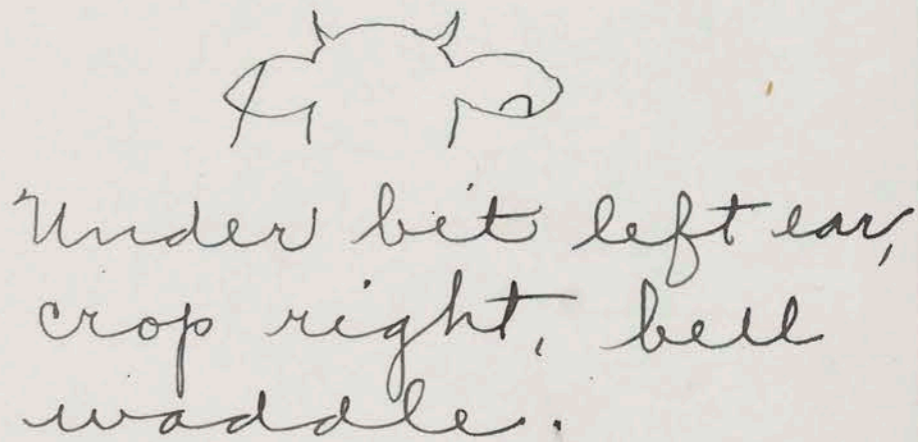 Under bit left ear,
crop right, bell
waddle.